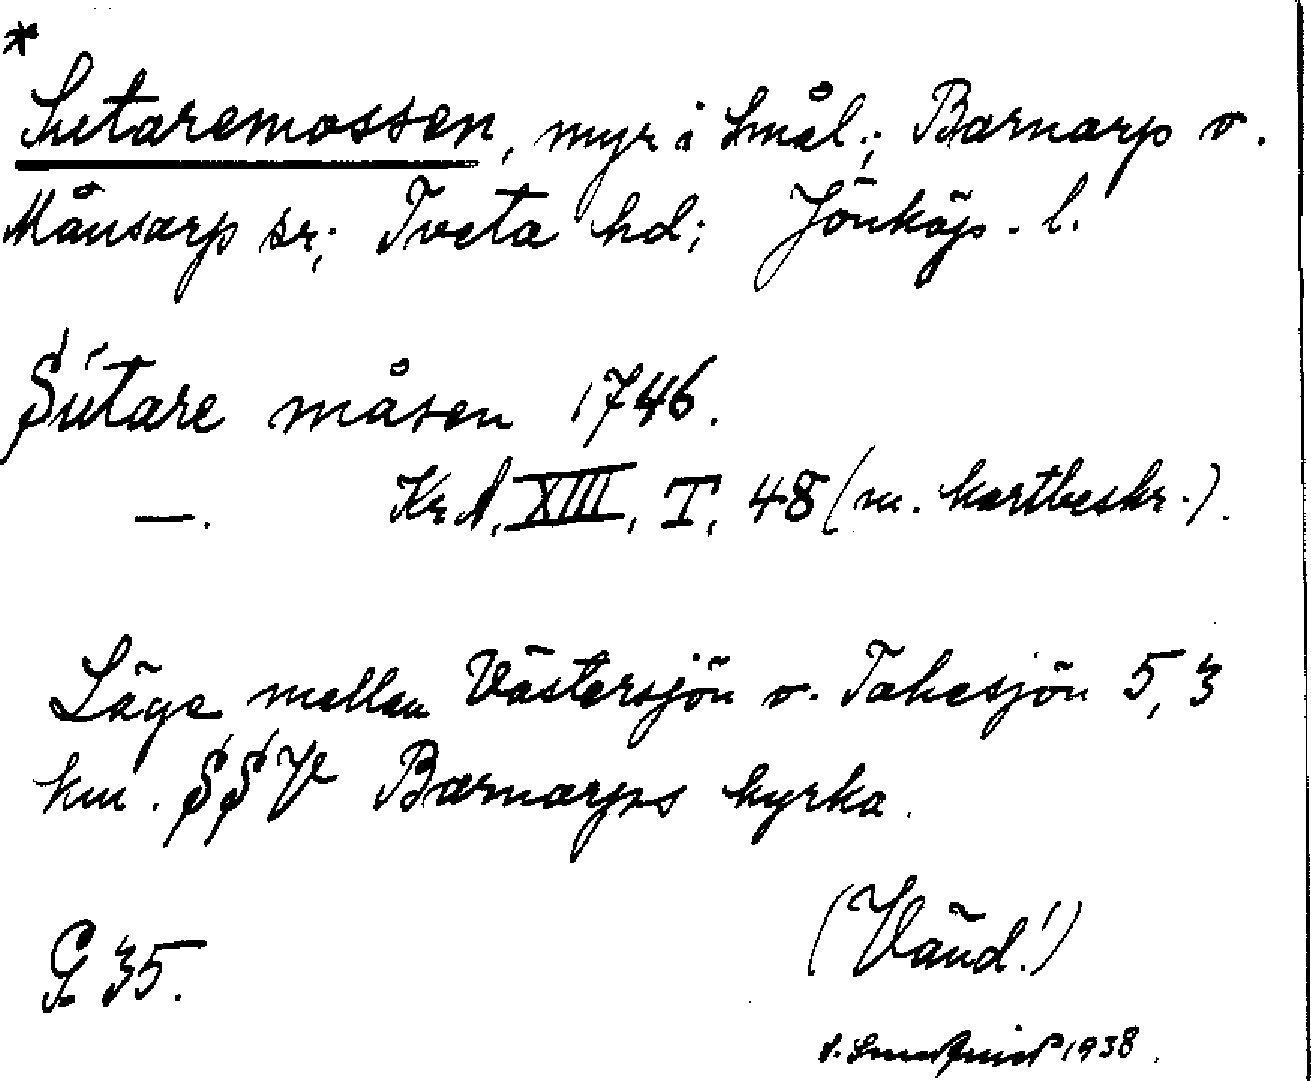 *
Sutaremossen, myr i Smål.; Barnarp o.
Månsarp sr; Tveta hd; Jönköp. l.
Sutare måsen 1746.
—. KrA, XIII, T, 48 (m. kartbeskr.).
Läge mellan Västersjön o. Tahesjön 5,3
km. SSV Barnarps kyrka.
G 35.
(Vänd!)
1938.